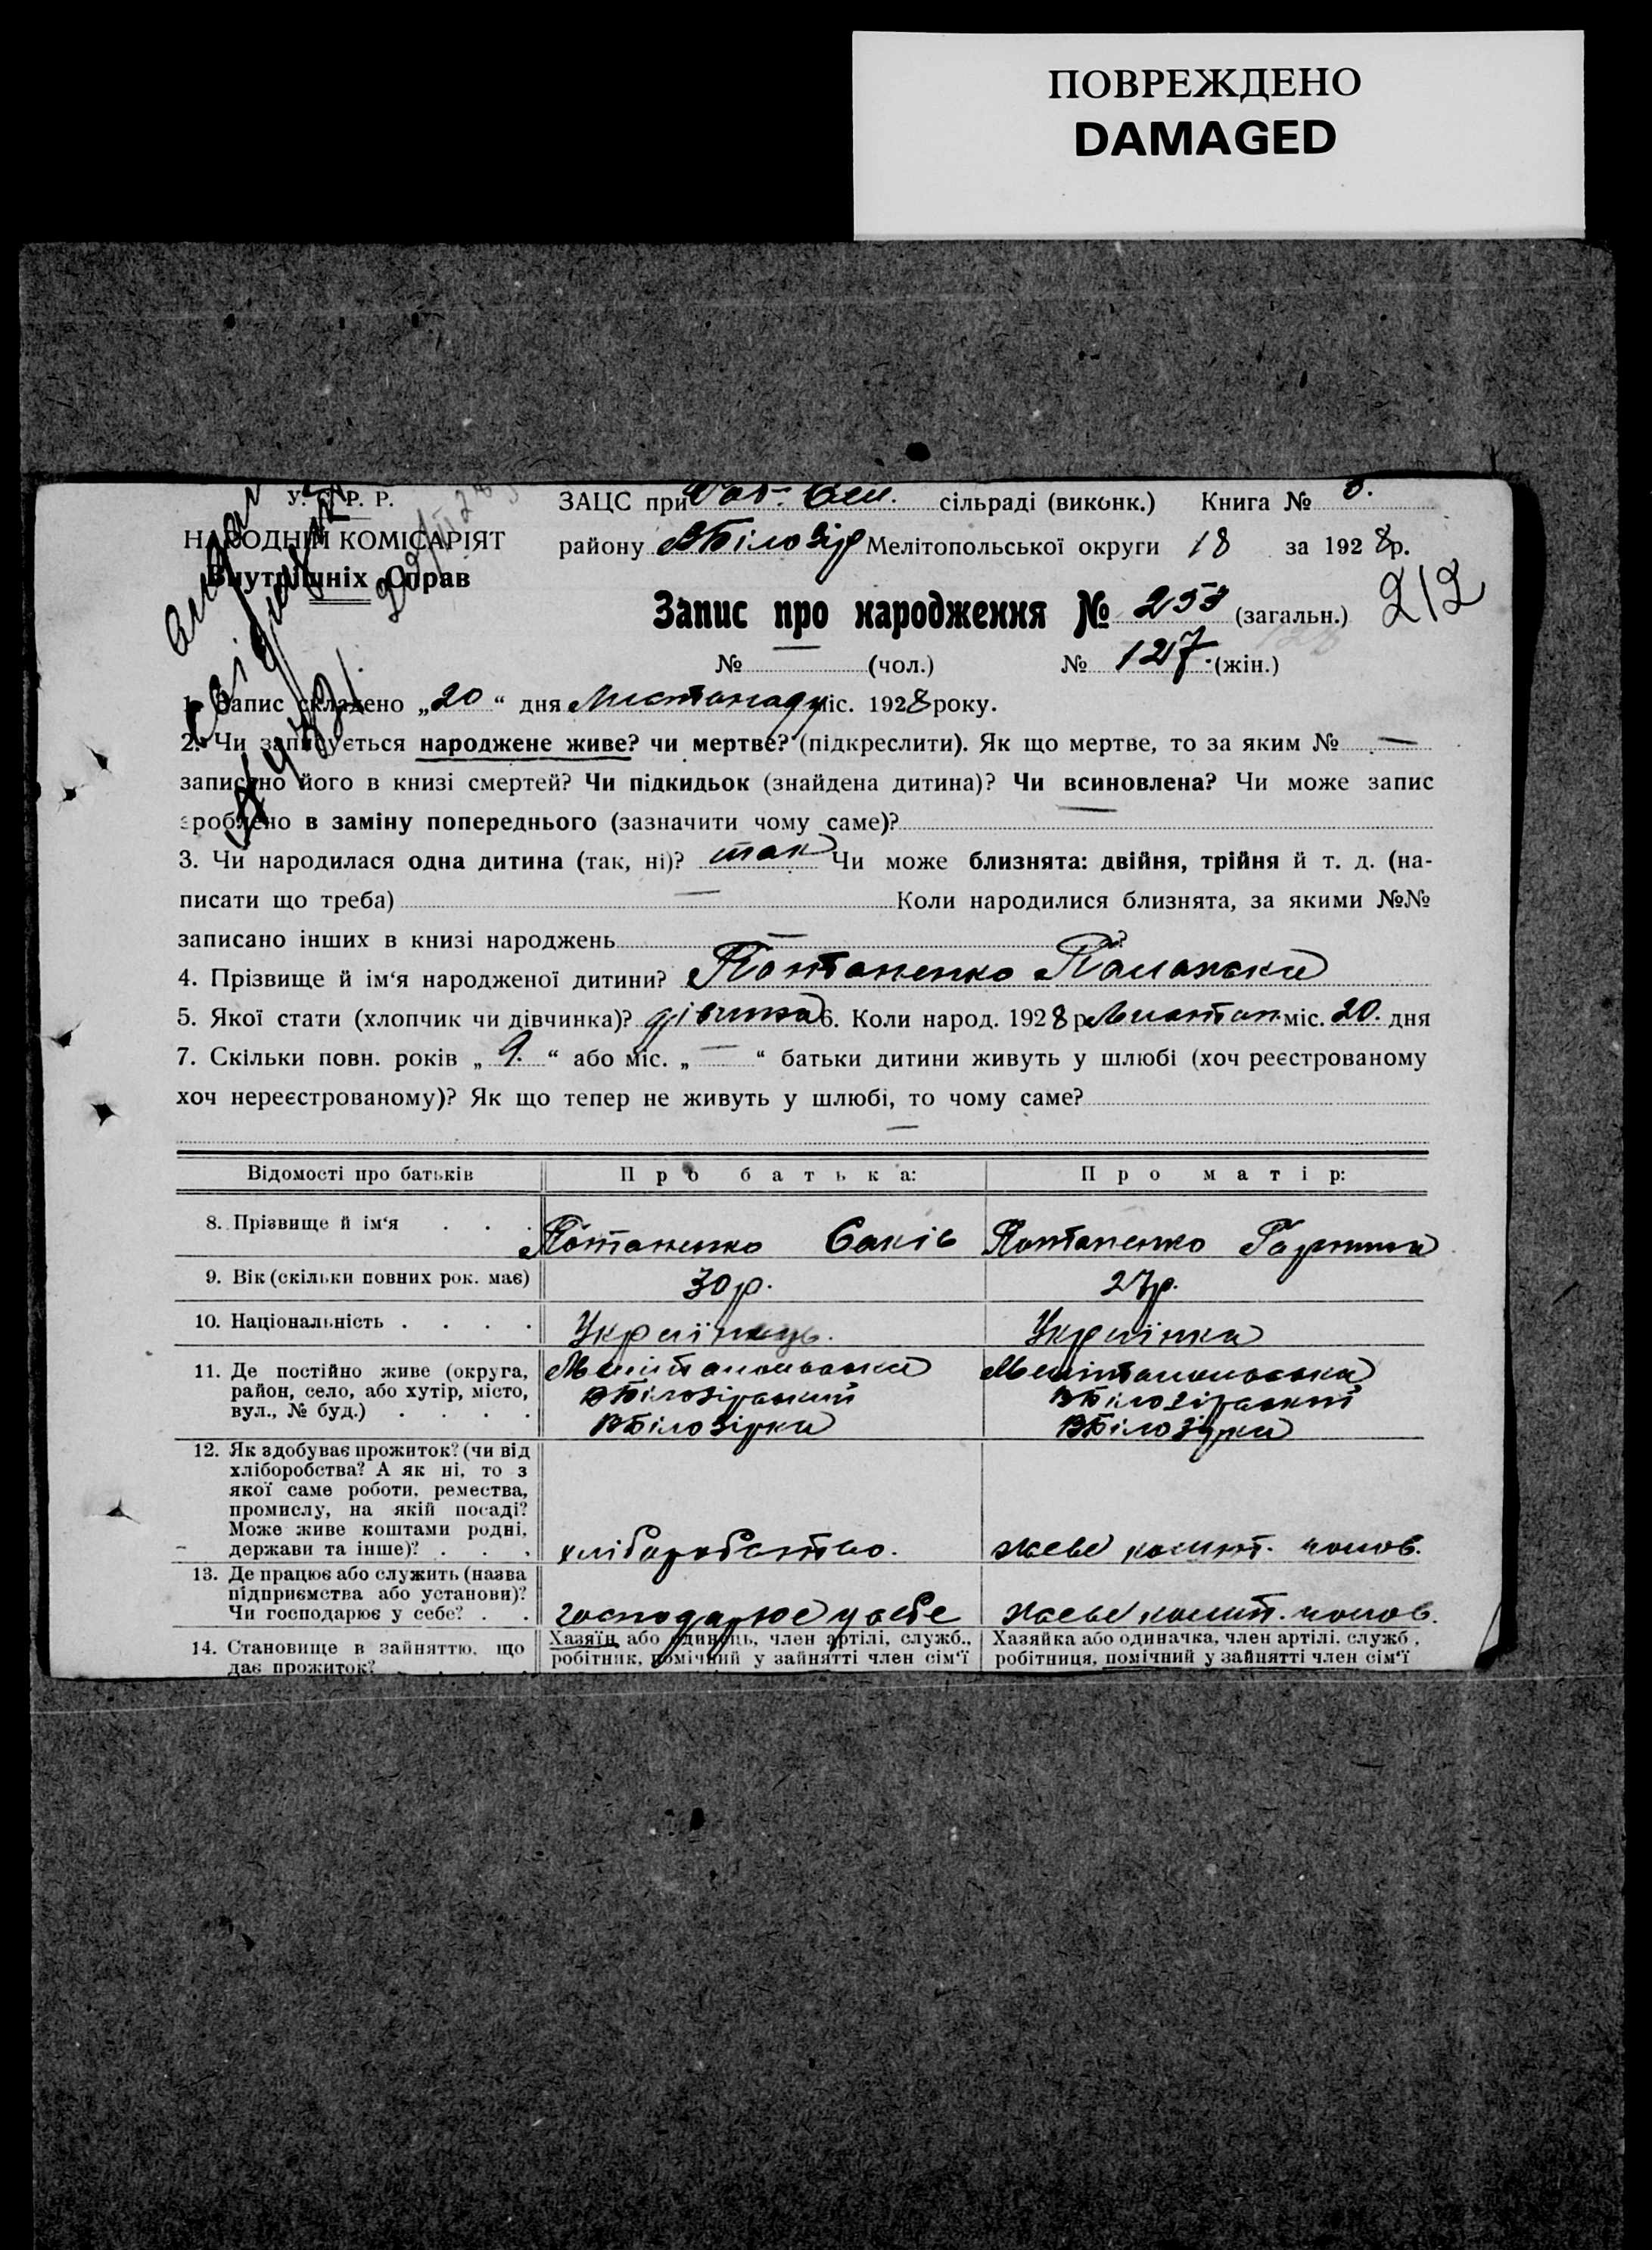 ПОВРЕЖДЕНО
DAMAGED
У. С. Р. Р.
НАРОДНІЙ КОМІСАРІЯТ
Внутрішніх Справ
ЗАЦС при сільраді (виконк.) Книга №
району ВБілозір Мелітопольської округи 18 за 1928 р.
Запис про народження № 253 (загальн.) 212
№ — (чол.) № 127. (жін.)
1. Запис складено „20“ дня Листопаду міс. 1928 року.
2. Чи записується народжене живе? чи мертве? (підкреслити). Як що мертве, то за яким № —
записано його в книзі смертей? Чи підкидьок (знайдена дитина)? Чи всиновлена? Чи може запис
зроблено в заміну попереднього (зазначити чому саме)? —
3. Чи народилася одна дитина (так, ні)? так Чи може близнята: двійня, трійня й т. д. (на-
писати що треба) — Коли народилися близнята, за якими №№
записано інших в книзі народжень — ?
4. Прізвище й ім‘я народженої дитини? Потапенко Палажка
5. Якої стати (хлопчик чи дівчинка)? дівчинка 6. Коли народ. 1928 р. Листоп. міс. 20. дня
7. Скільки повн. років „9.“ або міс. „—“ батьки дитини живуть у шлюбі (хоч реєстрованому
хоч нереєстрованому)? Як що тепер не живуть у шлюбі, то чому саме?
—
Відомості про батьків Про батька: Про матір:
8. Прізвище й ім‘я . . . Потапенко Яаків Потапенко
9. Вік (скільки повних рок. має) 30 р. 27 р.
10. Національність . . . . Українець. Українка
11. Де постійно живе (округа, Мелітопольська Мелітопольська
район, село, або хутір, місто, ВБілозірський ВБілозірський
вул., № буд.) . . . . ВБілозірка ВБілозірка
12. Як здобуває прожиток? (чи від
хліборобства? А як ні, то з
якої саме роботи, ремества,
промислу, на якій посаді?
Може живе коштами родні,
держави та інше)? . . . хліборобство. живе кошт. чолов.
13. Де працює або служить (назва
підприємства або установи)?
Чи господарює у себе? . . господарює у себе живе кошт. чолов.
14. Становище в зайняттю, що Хазяїн або одинець, член артілі, служб., Хазяйка або одиначка, член артілі, служб.,
дає прожиток? робітник, помічний у зайнятті член сім‘ї робітниця, помічний у зайнятті член сім‘ї